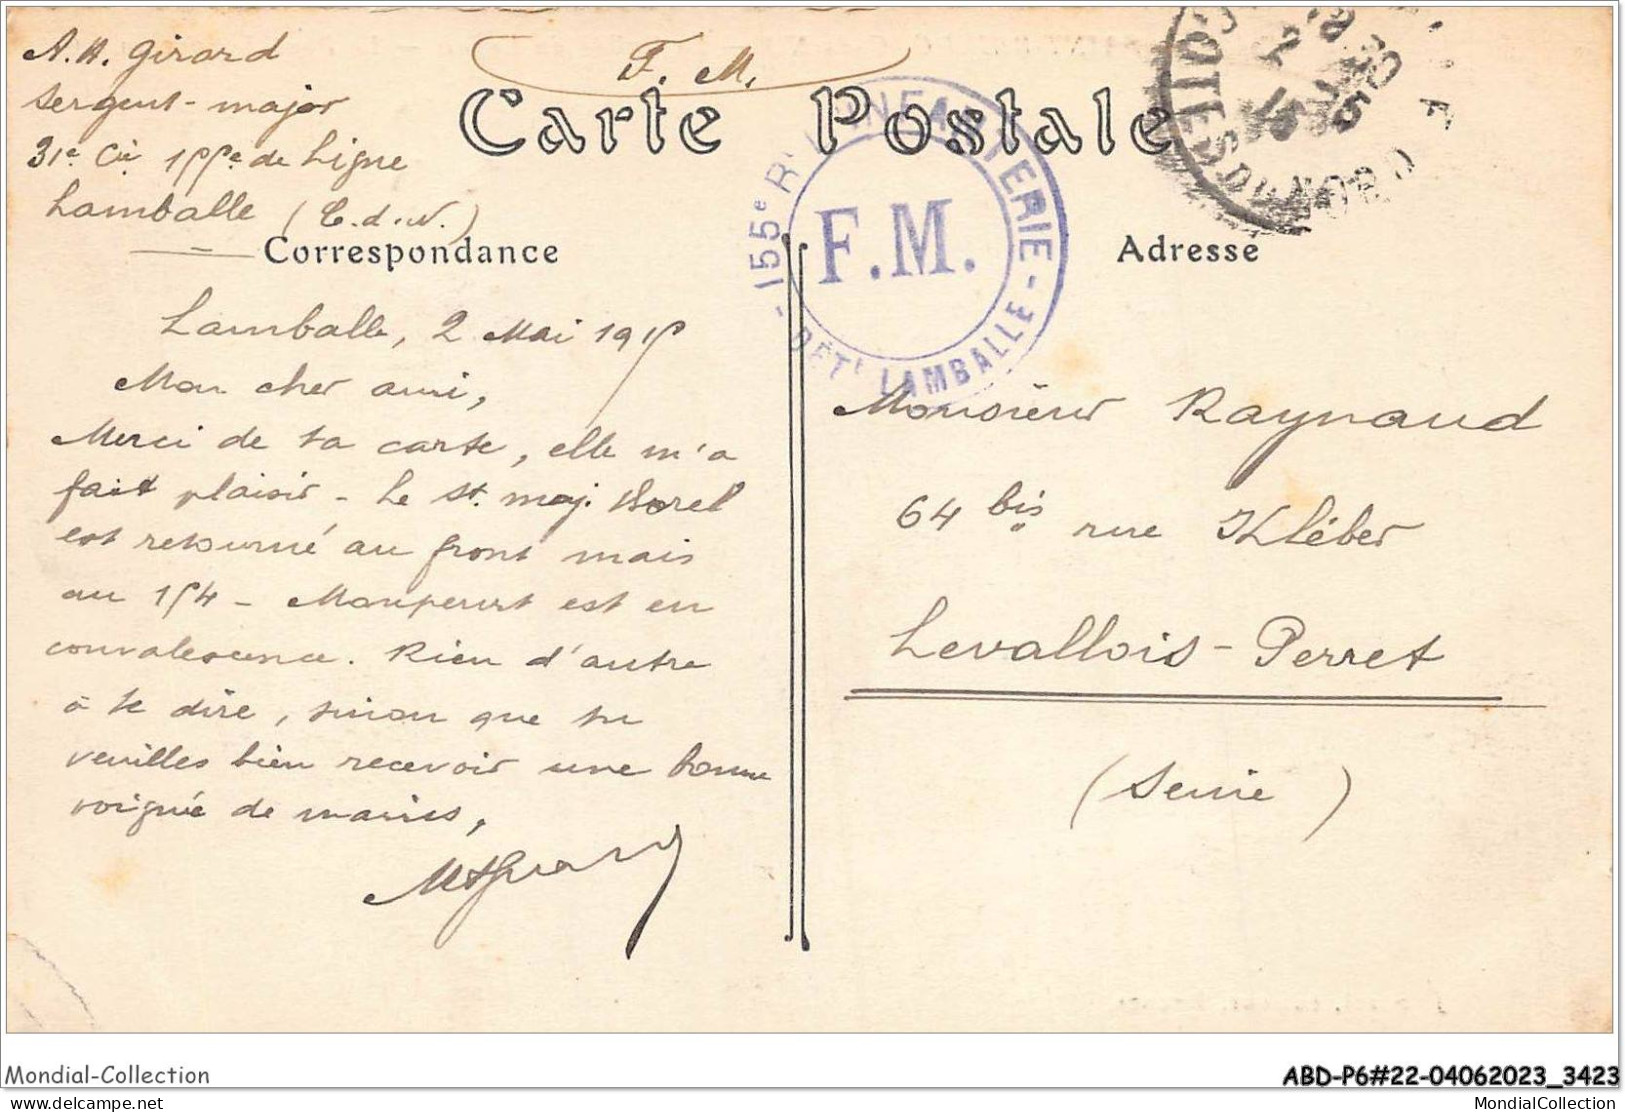 A. M. Girard
Sergent-major
31e Cie 155e de Ligne
Lamballe (C.d.N.)
F. M.
Carte Postale
155e Rt D'INFANTERIE - DÉTt LAMBALLE -
F.M.
18 30
2 - 5
15
CÔTES DU NORD
Correspondance
Adresse
Lamballe, 2 Mai 1915
Mon cher ami,
Merci de ta carte, elle m'a
fait plaisir - Le St. maj. Borel
est retourné au front mais
au 154 - est en
convalescence. Rien d'autre
à te dire, sinon que tu
veuilles bien recevoir une bonne
poignée de mains,
Monsieur Raynaud
64 bis rue Kléber
Levallois-Perret
(Seine)
Mondial-Collection
ABD-P6#22-04062023_3423
www.delcampe.net
MondialCollection